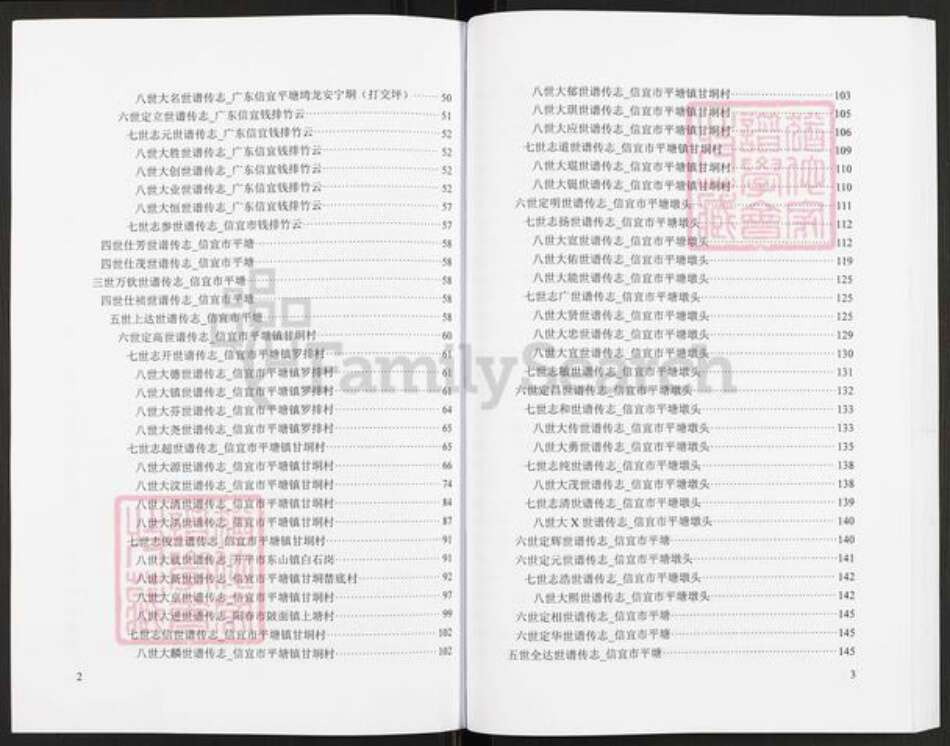 八世大名世谱传志_广东信宜平塘琦龙安宁垌（打交坪）……50
六世定立世谱传志_广东信宜钱排竹云……51
七世志元世谱传志_广东信宜钱排竹云……52
八世大胜世谱传志_广东信宜钱排竹云……52
八世大创世谱传志_广东信宜钱排竹云……52
八世大业世谱传志_广东信宜钱排竹云……52
八世大恒世谱传志_广东信宜钱排竹云……57
七世志参世谱传志_信宜市钱排竹云……57
四世仕芳世谱传志_信宜市平塘……58
四世仕茂世谱传志_信宜市平塘……58
三世万钦世谱传志_信宜市平塘……58
四世仕祯世谱传志_信宜市平塘……58
五世上达世谱传志_信宜市平塘……58
六世定高世谱传志_信宜市平塘镇甘垌村……60
七世志开世谱传志_信宜市平塘镇罗排村……61
八世大德世谱传志_信宜市平塘镇罗排村……61
八世大镇世谱传志_信宜市平塘镇罗排村……61
八世大芬世谱传志_信宜市平塘镇罗排村……64
八世大尧世谱传志_信宜市平塘镇罗排村……65
七世志超世谱传志_信宜市平塘镇甘垌村……65
八世大源世谱传志_信宜市平塘镇甘垌村……66
八世大汶世谱传志_信宜市平塘镇甘垌村……74
八世大清世谱传志_信宜市平塘镇甘垌村……84
八世大洪世谱传志_信宜市平塘镇甘垌村……87
七世志俊世谱传志_信宜市平塘镇甘垌村……91
八世大 世谱传志_开平市东山镇白石岗……91
八世大新世谱传志_信宜市平塘镇甘垌 底村……92
八世大京世谱传志_信宜市平塘镇甘垌村……97
八世大进世谱传志_阳春市陂面镇上塘村……99
七世志信世谱传志_信宜市平塘镇甘垌村……102
八世大麟世谱传志_信宜市平塘镇甘垌村……102
2
八世大郁世谱传志_信宜市平塘镇甘垌村……103
八世大琪世谱传志_信宜市平塘镇甘垌村……105
八世大应世谱传志_信宜市平塘镇甘垌村……106
七世志道世谱传志_信宜市平塘镇甘垌村……109
八世大琨世谱传志_信宜市平塘镇甘垌村……110
八世大锟世谱传志_信宜市平塘镇甘垌村……110
六世定明世谱传志_信宜市平塘墩头……111
七世志扬世谱传志_信宜市平塘墩头……112
八世大宣世谱传志_信宜市平塘墩头……112
八世大佑世谱传志_信宜市平塘墩头……119
八世大能世谱传志_信宜市平塘墩头……125
七世志广世谱传志_信宜市平塘墩头……125
八世大贤世谱传志_信宜市平塘墩头……125
八世大忠世谱传志_信宜市平塘墩头……129
八世大宜世谱传志_信宜市平塘墩头……130
七世志敏世谱传志_信宜市平塘墩头……131
六世定昌世谱传志_信宜市平塘墩头……132
七世志和世谱传志_信宜市平塘墩头……133
八世大传世谱传志_信宜市平塘墩头……133
八世大勇世谱传志_信宜市平塘墩头……135
七世志纯世谱传志_信宜市平塘墩头……138
八世大茂世谱传志_信宜市平塘墩头……138
七世志清世谱传志_信宜市平塘墩头……139
八世大 X 世谱传志_信宜市平塘墩头……140
六世定辉世谱传志_信宜市平塘……140
六世定元世谱传志_信宜市平塘墩头……141
七世志浩世谱传志_信宜市平塘墩头……142
八世大熙世谱传志_信宜市平塘墩头……142
六世定相世谱传志_信宜市平塘……145
六世定华世谱传志_信宜市平塘……145
五世全达世谱传志_信宜市平塘……145
3
FamilySearch